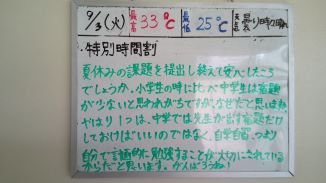 9/3(火) 最高 33℃ 最低 25℃ 天気 曇り時々晴
特別時間割
夏休みの課題を提出し終えて安心したころ
でしょうか。小学生の時に比べ中学生は宿題
が少ないと思われがちですが、なぜだと思いますか
やはり1つは、中学では先生が出す宿題だけ
しておけばいいのではなく、自学自習、つまり
自分で計画的に勉強することが大切にされている
からだと思います。がんばろうね!